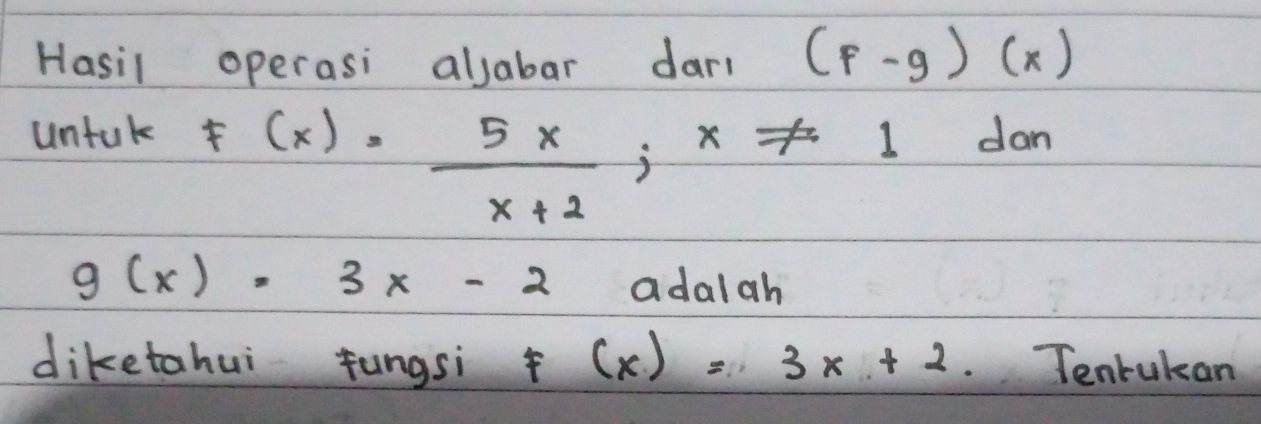 Hasil operasi aljabar dari (f - g) (x)
untuk f (x) = 5x / x + 2 ; x ≠ 1 dan
g (x) = 3x - 2 adalah
diketahui fungsi f (x) = 3x + 2. Tentukan